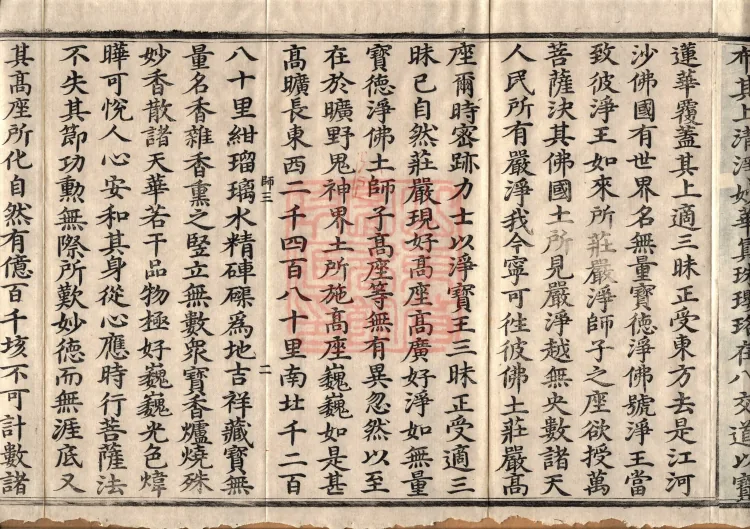 布其上清淨好華真珠瓔珞在八交道以寶
蓮華覆蓋其上適三昧正受東方去是江河
沙佛國有世界名無量寶德淨佛號淨王當
致彼淨王如來所莊嚴淨師子之座欲授萬
菩薩決其佛國土所見嚴淨越無央數諸天
人民所有嚴淨我今寧可徃彼佛土莊嚴高
座爾時密跡力士以淨寶王三昧正受適三
昧已自然莊嚴現好高座高廣好淨如無量
寶德淨佛土師子高座等無有異忽然以至
在於曠野鬼神界土所施高座巍巍如是甚
高曠長東西二千四百八十里南北千二百
師三 二
八十里紺瑠璃水精硨磲爲地吉祥藏寶無
量名香雜香熏之竪立無數衆寶香爐燒殊
妙香散諸天華若干品物極好巍巍光色煒
曄可悅人心安和其身從心應時行菩薩法
不失其節功勳無際所歎妙德而無涯底又
其高座所化自然有億百千垓不可計數諸